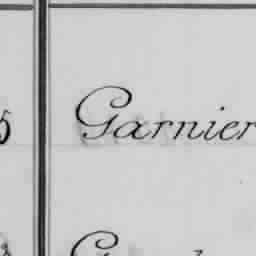 5 Garnier